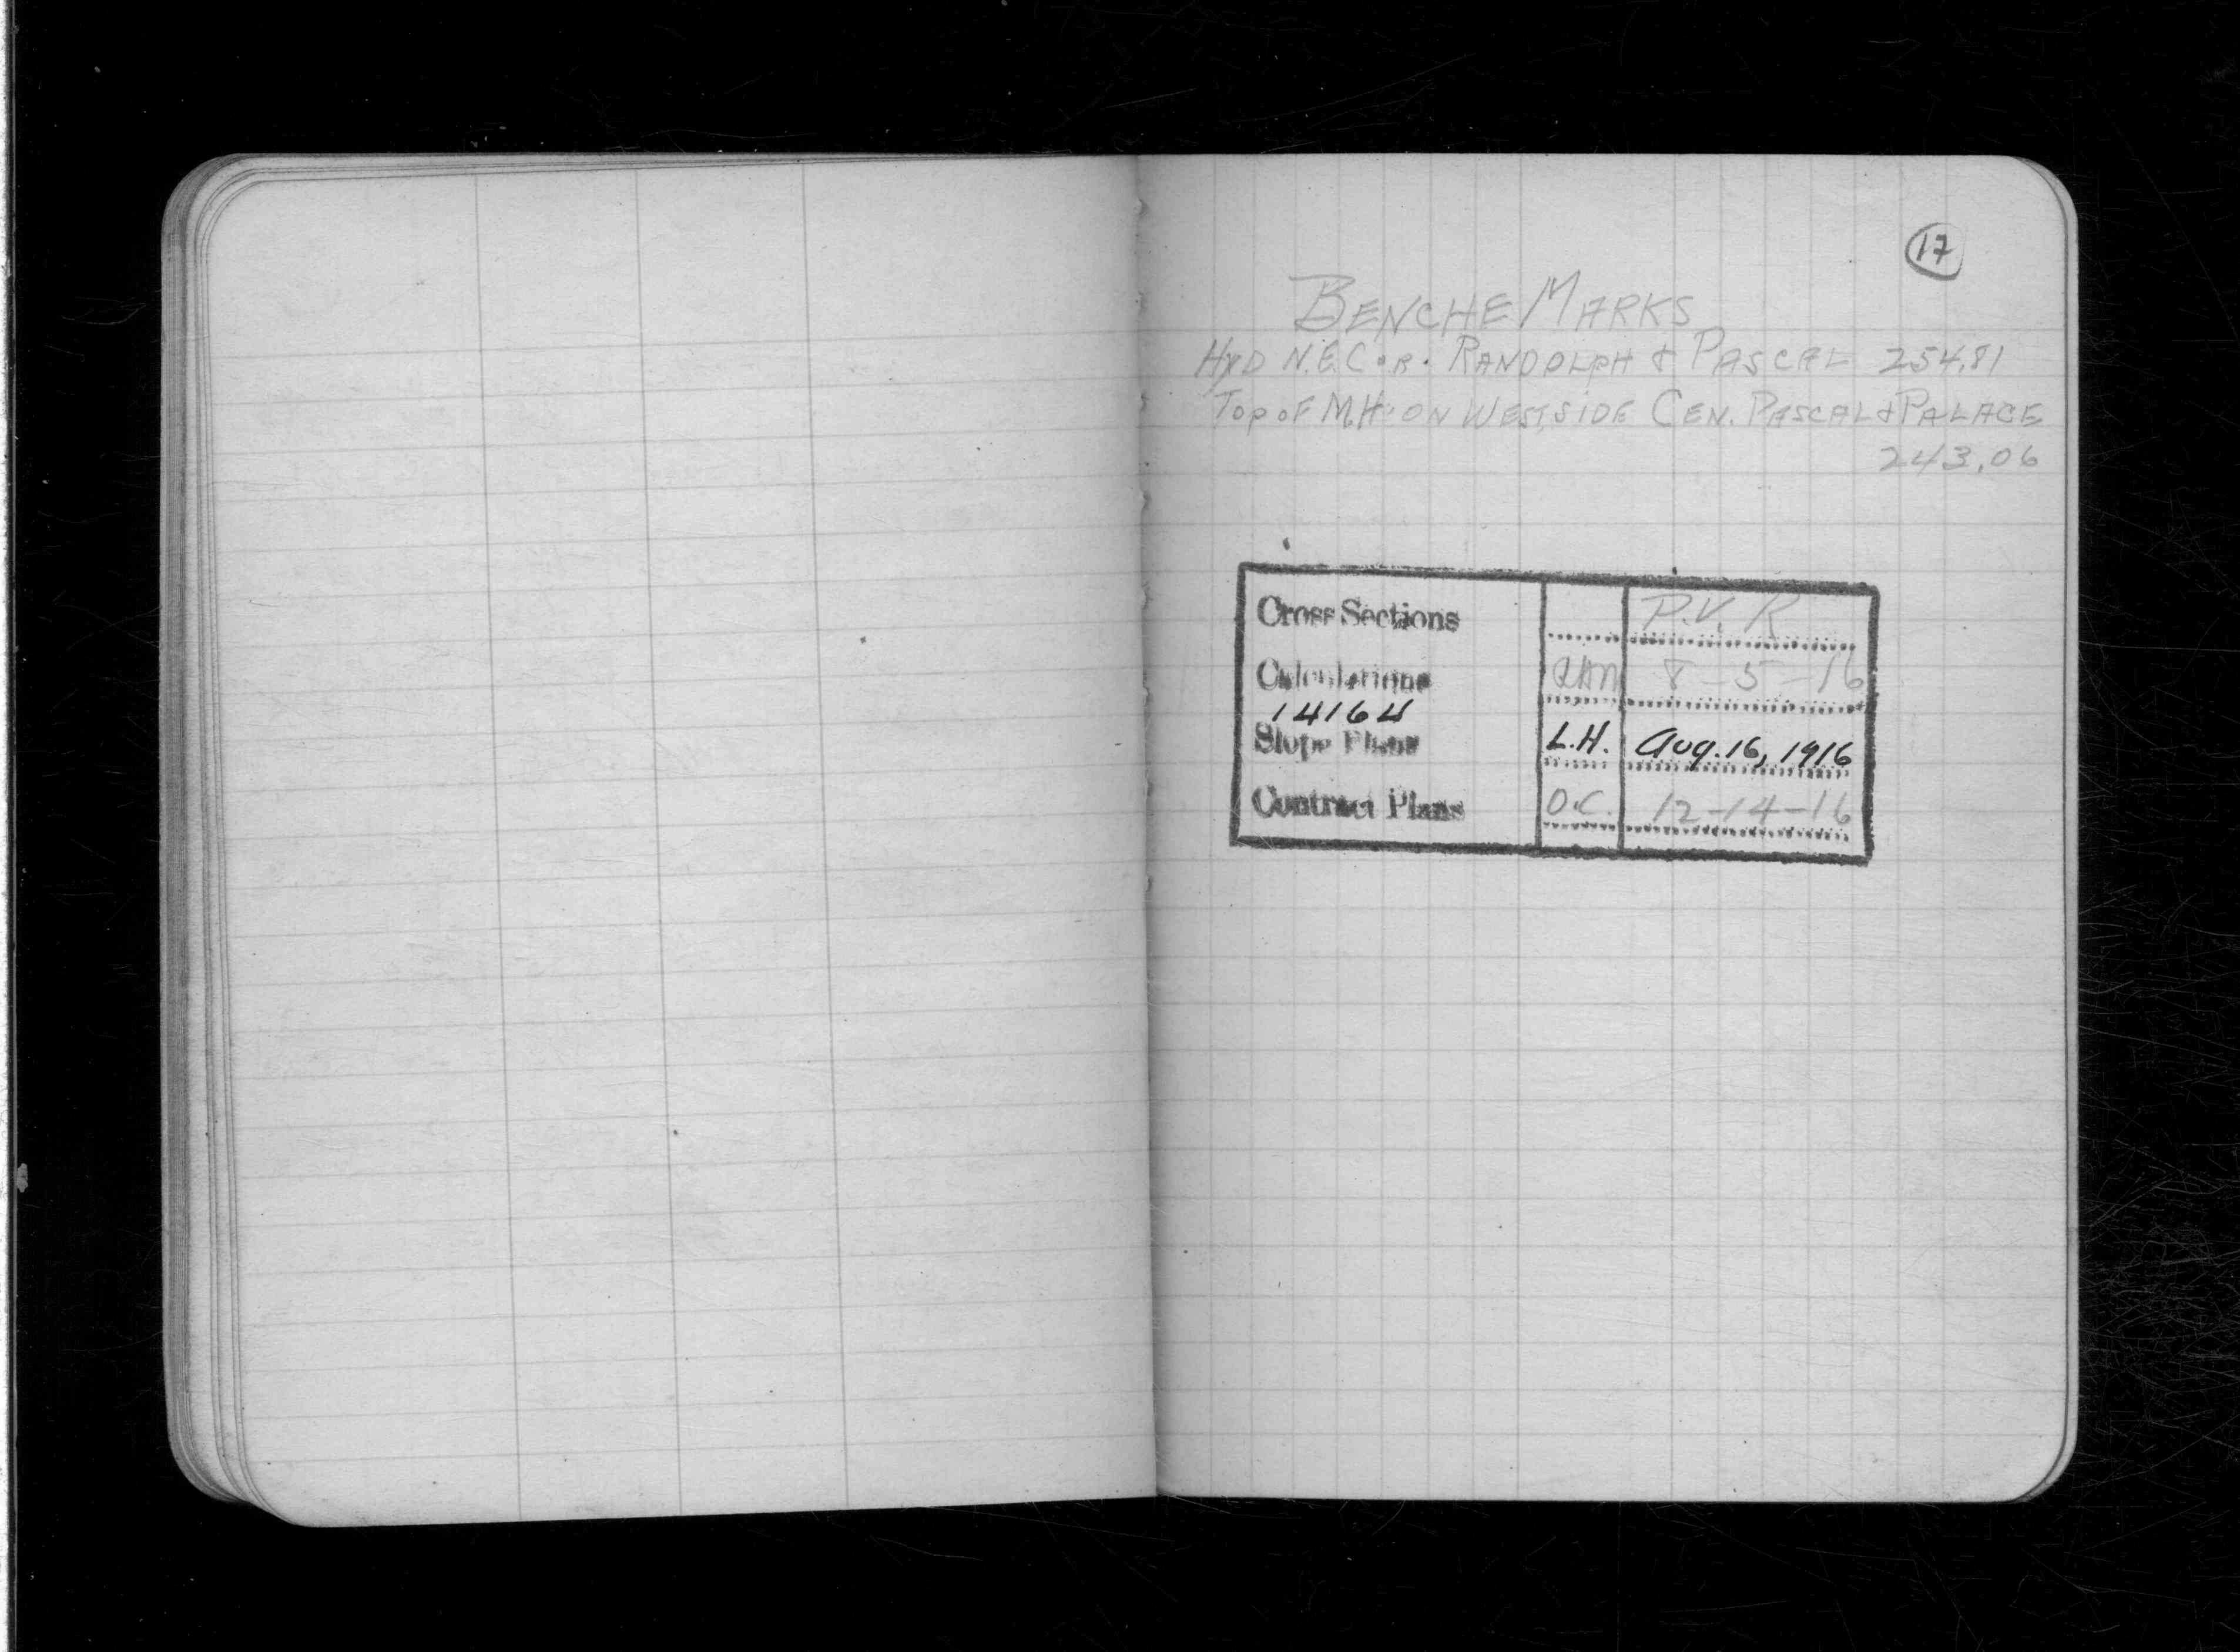 17
BENCHE MARKS
HYD N.E. COR. RANDOLPH & PASCAL 254.81
TOP OF M.H. ON WEST SIDE CEN. PASCAL & PALACE
243.06
Cross Sections P.V.R
Calculations 8-5-16
14164
Slope Plans L.H. Aug. 16, 1916
Contract Plans O.C. 12-14-16